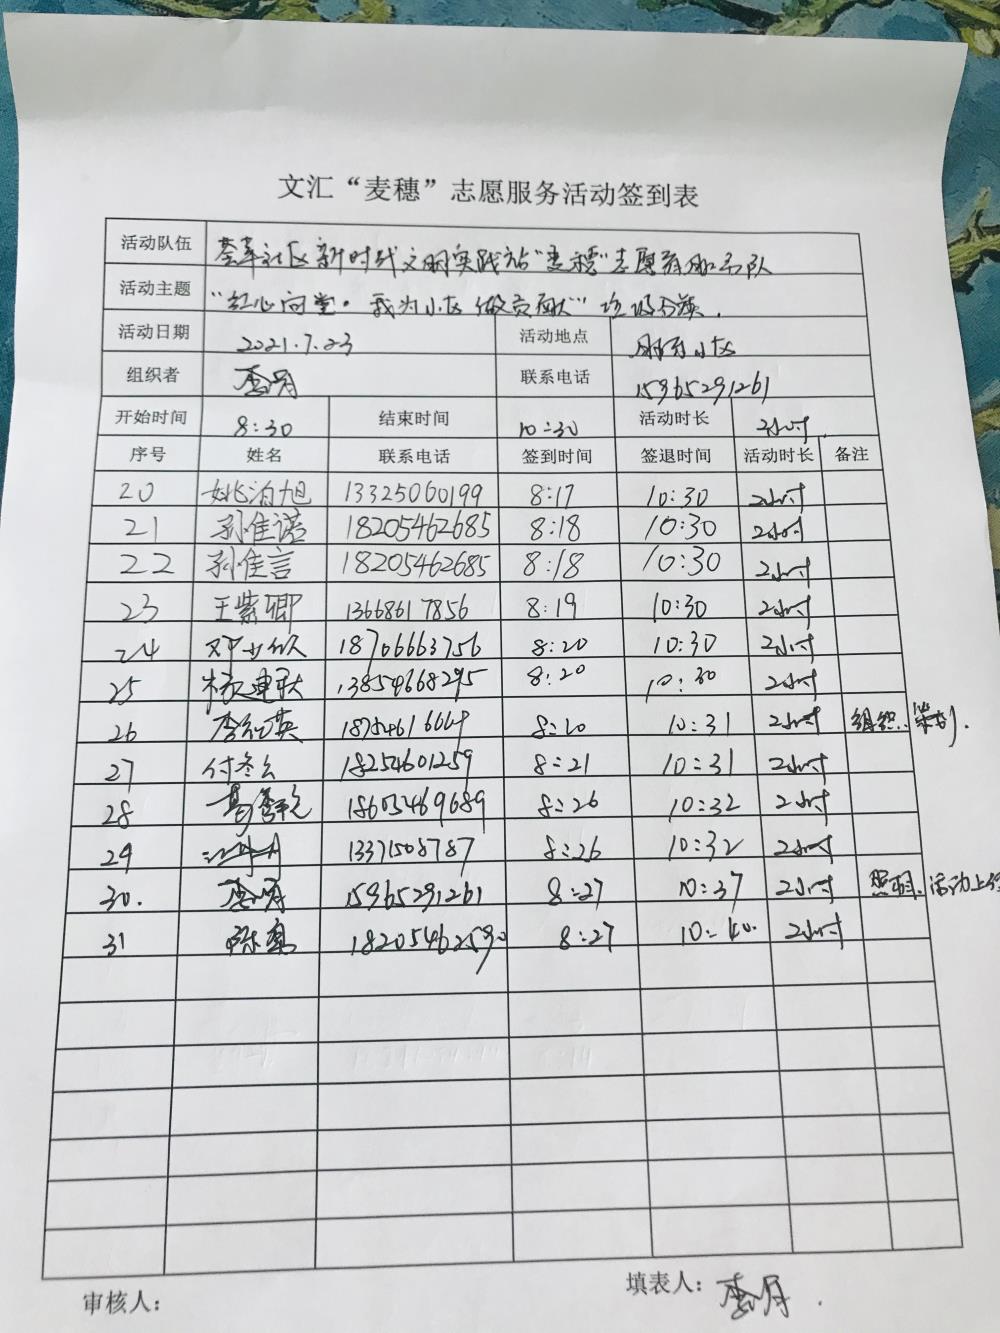 文汇“麦穗”志愿服务活动签到表
活动队伍 社区新时代文明实践站“麦穗”志愿服务队
活动主题 “红心向党·我为小区做贡献”垃圾分类.
活动日期 2021.7.23 活动地点 小区
组织者 李明 联系电话 15965291261
开始时间 8:30 结束时间 10:30 活动时长 2小时
序号 姓名 联系电话 签到时间 签退时间 活动时长 备注
20 姚泊旭 13325060199 8:17 10:30 2小时
21 孙佳诺 18205462685 8:18 10:30 2小时
22 孙佳言 18205462685 8:18 10:30 2小时
23 王紫卿 13668617856 8:19 10:30 2小时
24 18706663756 8:20 10:30 2小时
25 杨建秋 13854668295 8:20 10:30 2小时
26 李红英 8:20 10:31 2小时 组织.策划.
27 付冬云 18254601259 8:21 10:31 2小时
28 18605469689 8:26 10:32 2小时
29 13371508787 8:26 10:32 2小时
30. 李明 15965291261 8:27 10:37 2小时 活动上传
31 18205462590 8:27 10:40. 2小时
审核人： 填表人：李明.